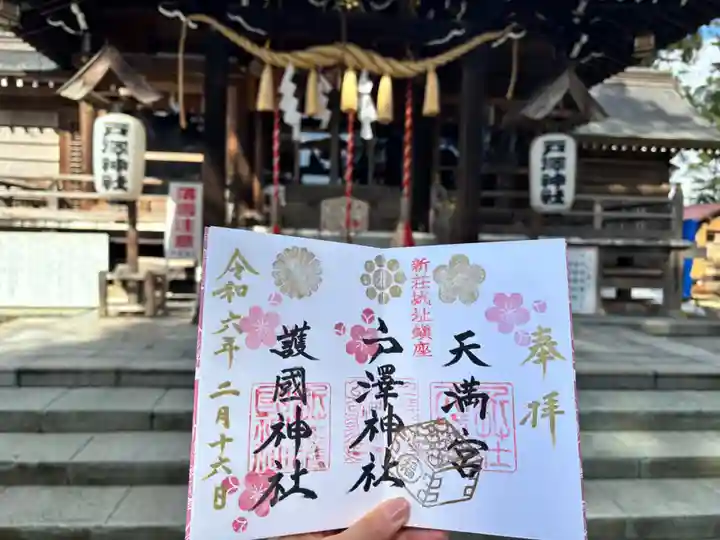 戸澤神社
戸澤神社
落雪注意
奉拝
天満宮
新荘城址鎮座
戸澤神社
護國神社
令和六年二月十六日